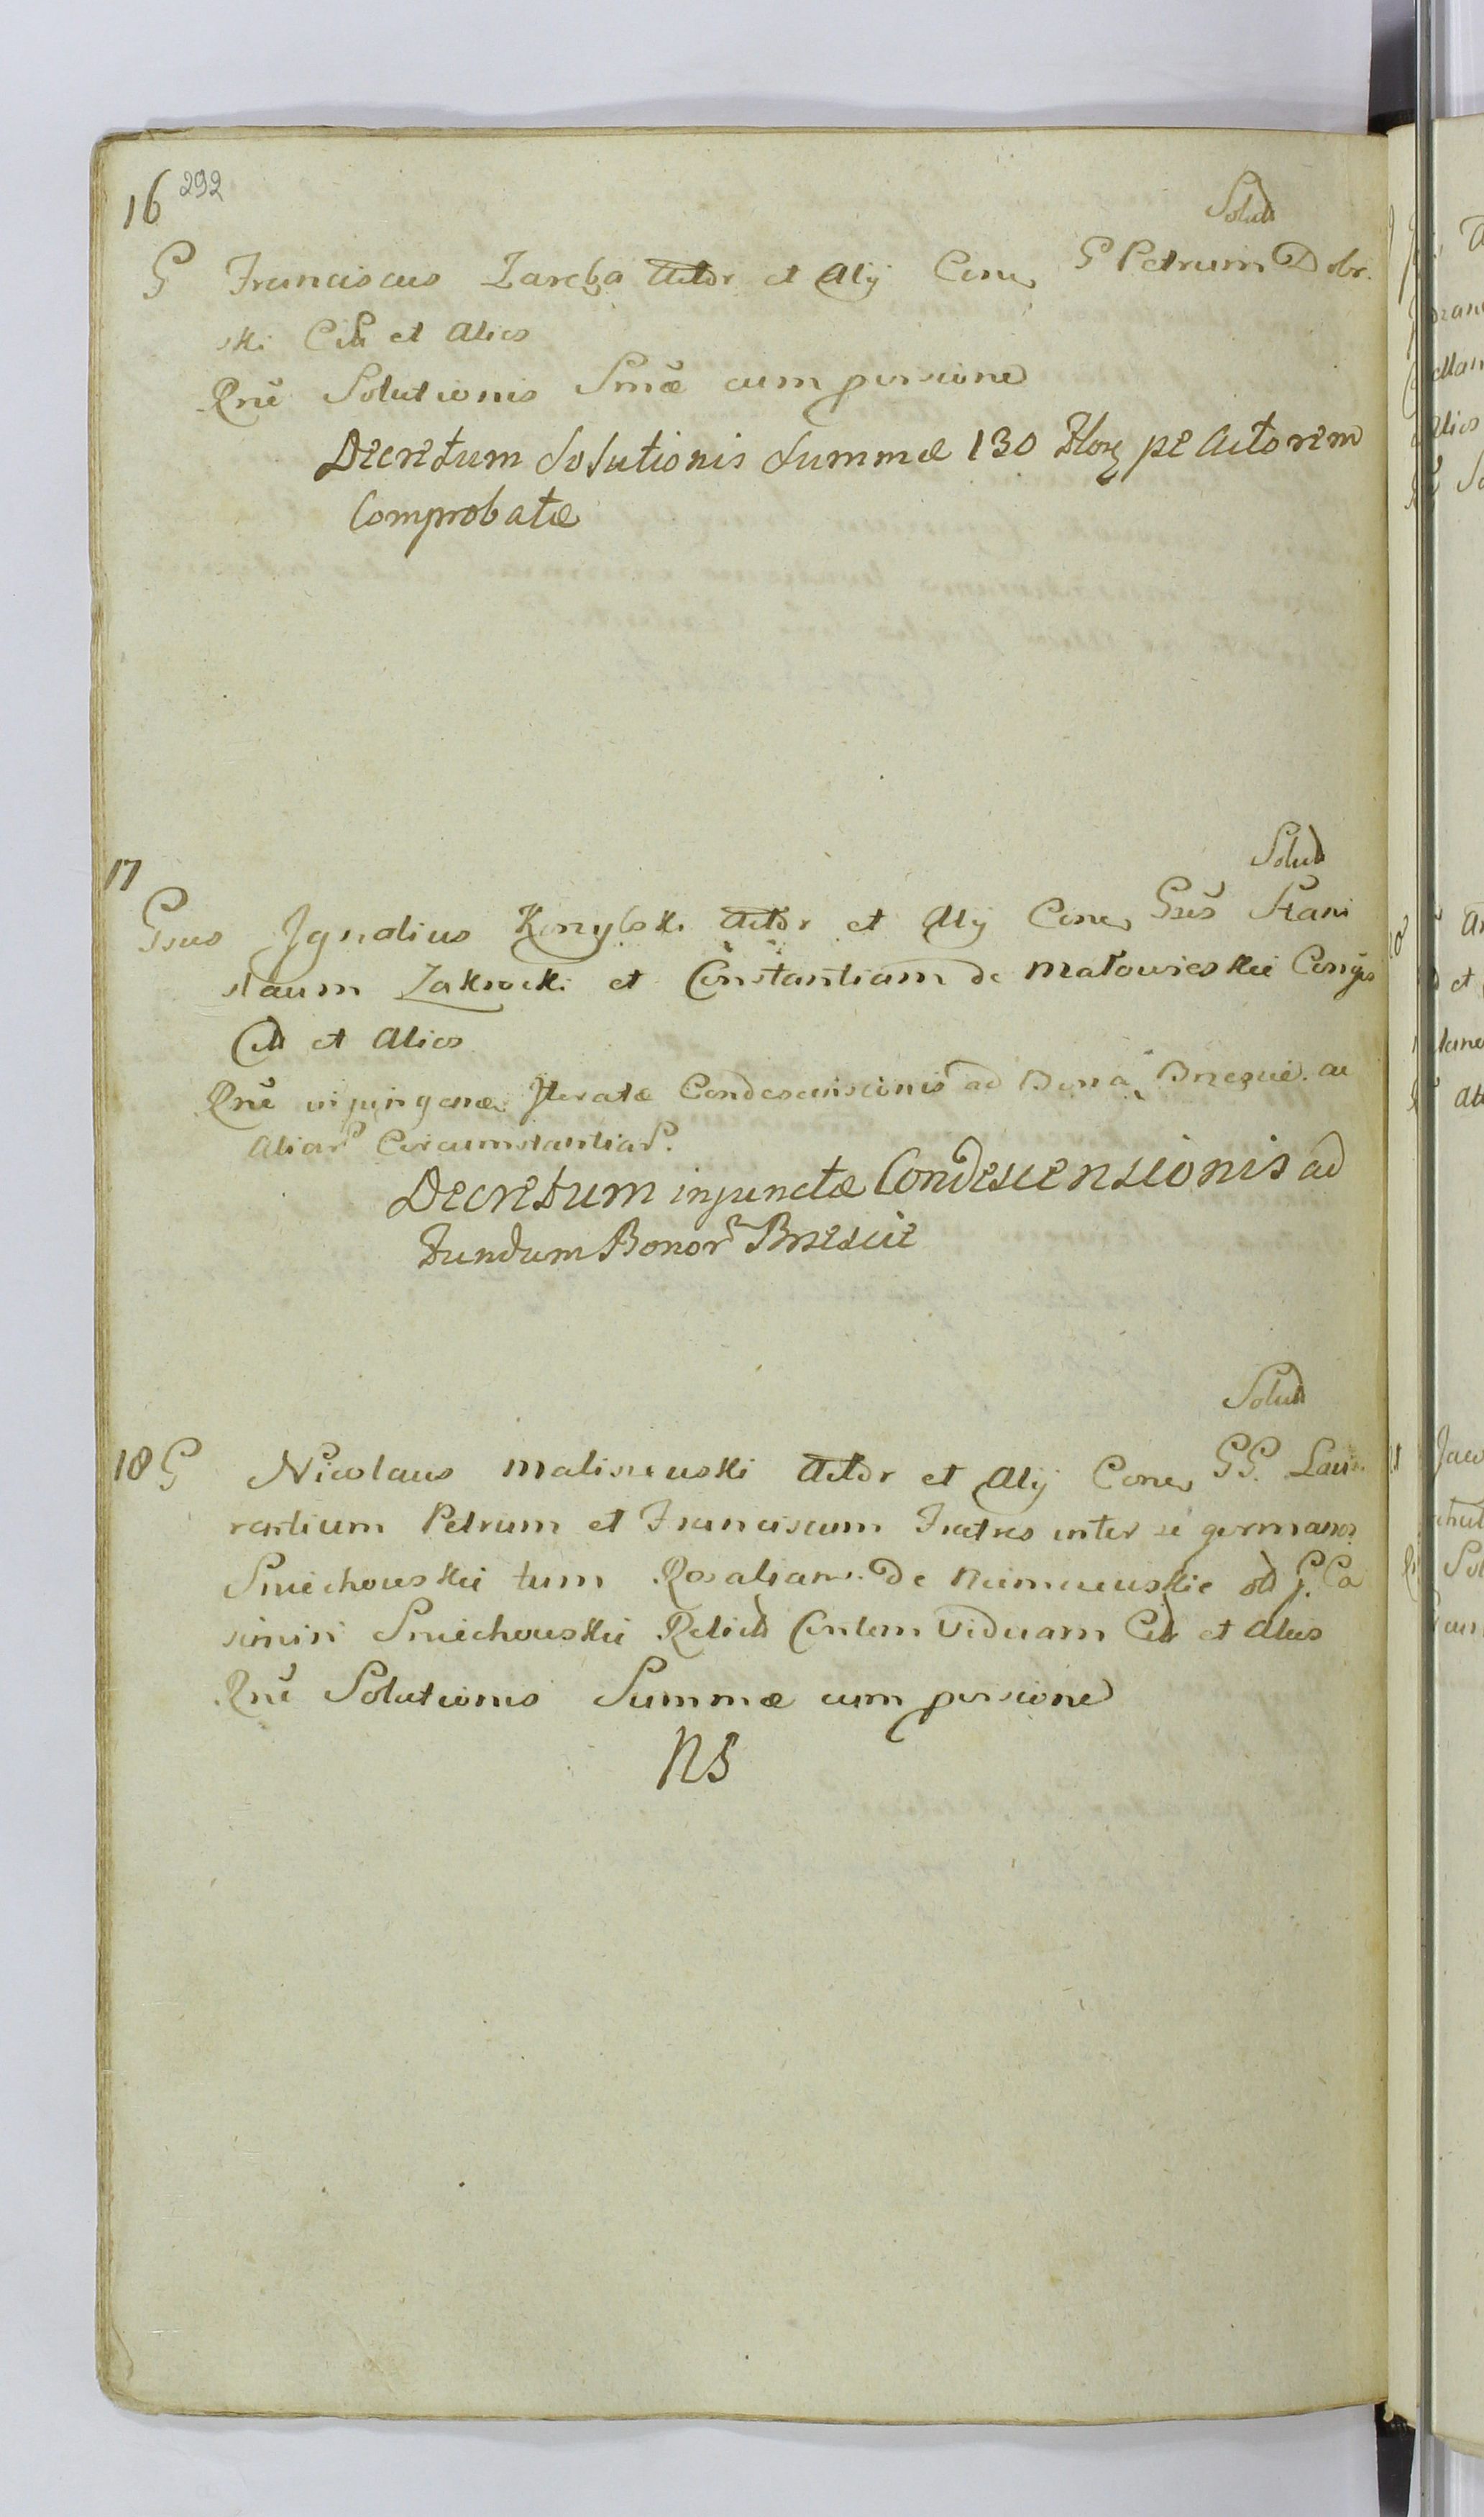 16 292
Solut
G Franciscus Zaręba Actor et Alij Con G Petrum Dobr.
ski Cit et Alios
Rne Solutionis Smæ cum pensione
Decretum Solutionis Summæ 130 flor pe Actorem
Comprobatæ
17
Solut
Gsus Ignatius Actor et Alij Con Gsos Stani
slaum Zakrocki et Constantiam de Małowieskie Conjges
Cit et Alios
Rne injungenæ Iteratæ Condescensionis ad Bona ac
Aliar Circumstantiar.
Decretum injunctæ Condescensionis ad
fundum Bonor
Solut
18 G Nicolaus Maliszewski Actor et Alij Con GG. Lau
rentium Petrum et Franciscum Fratres inter se germanos
Sniechowskie tum Rosaliam De ol G. Ca
simiri Sniechowskie Relict Contem Viduam Cit et Alios
Rne Solutionis Summæ cum pensione
NS